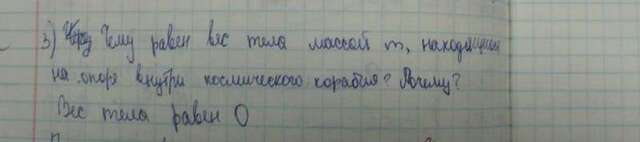 3) Чему равен вес тела массой m, находящийся
на опоре внутри космического корабля? Почему?
Вес тела равен 0